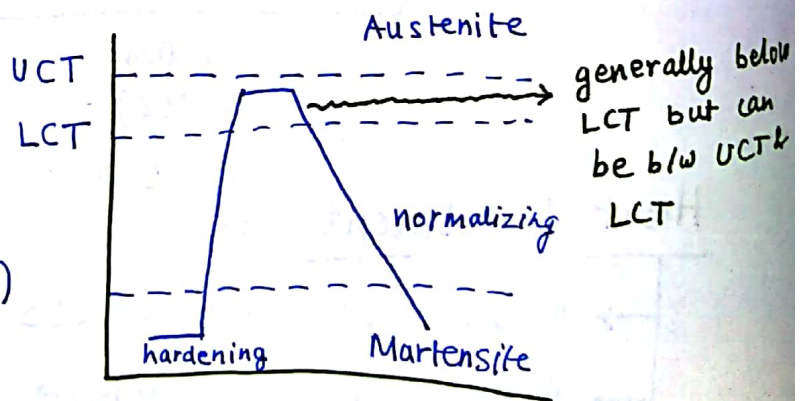 Austenite
UCT
LCT
generally below
LCT but can
be b/w UCT &
LCT
normalizing
)
hardening
Martensite